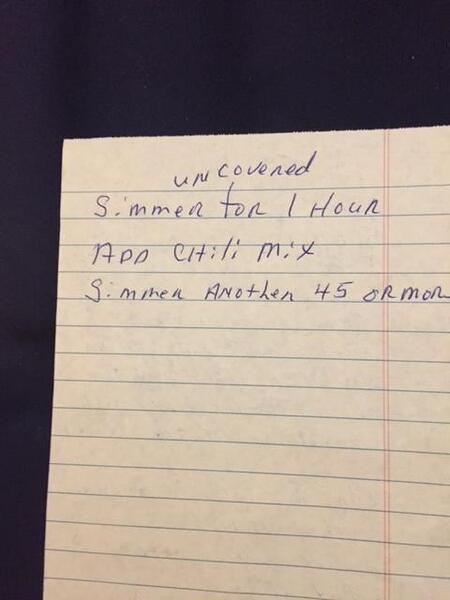 uncovered
Simmer for 1 Hour
ADD CHili Mix
Simmer ANother 45 or mor